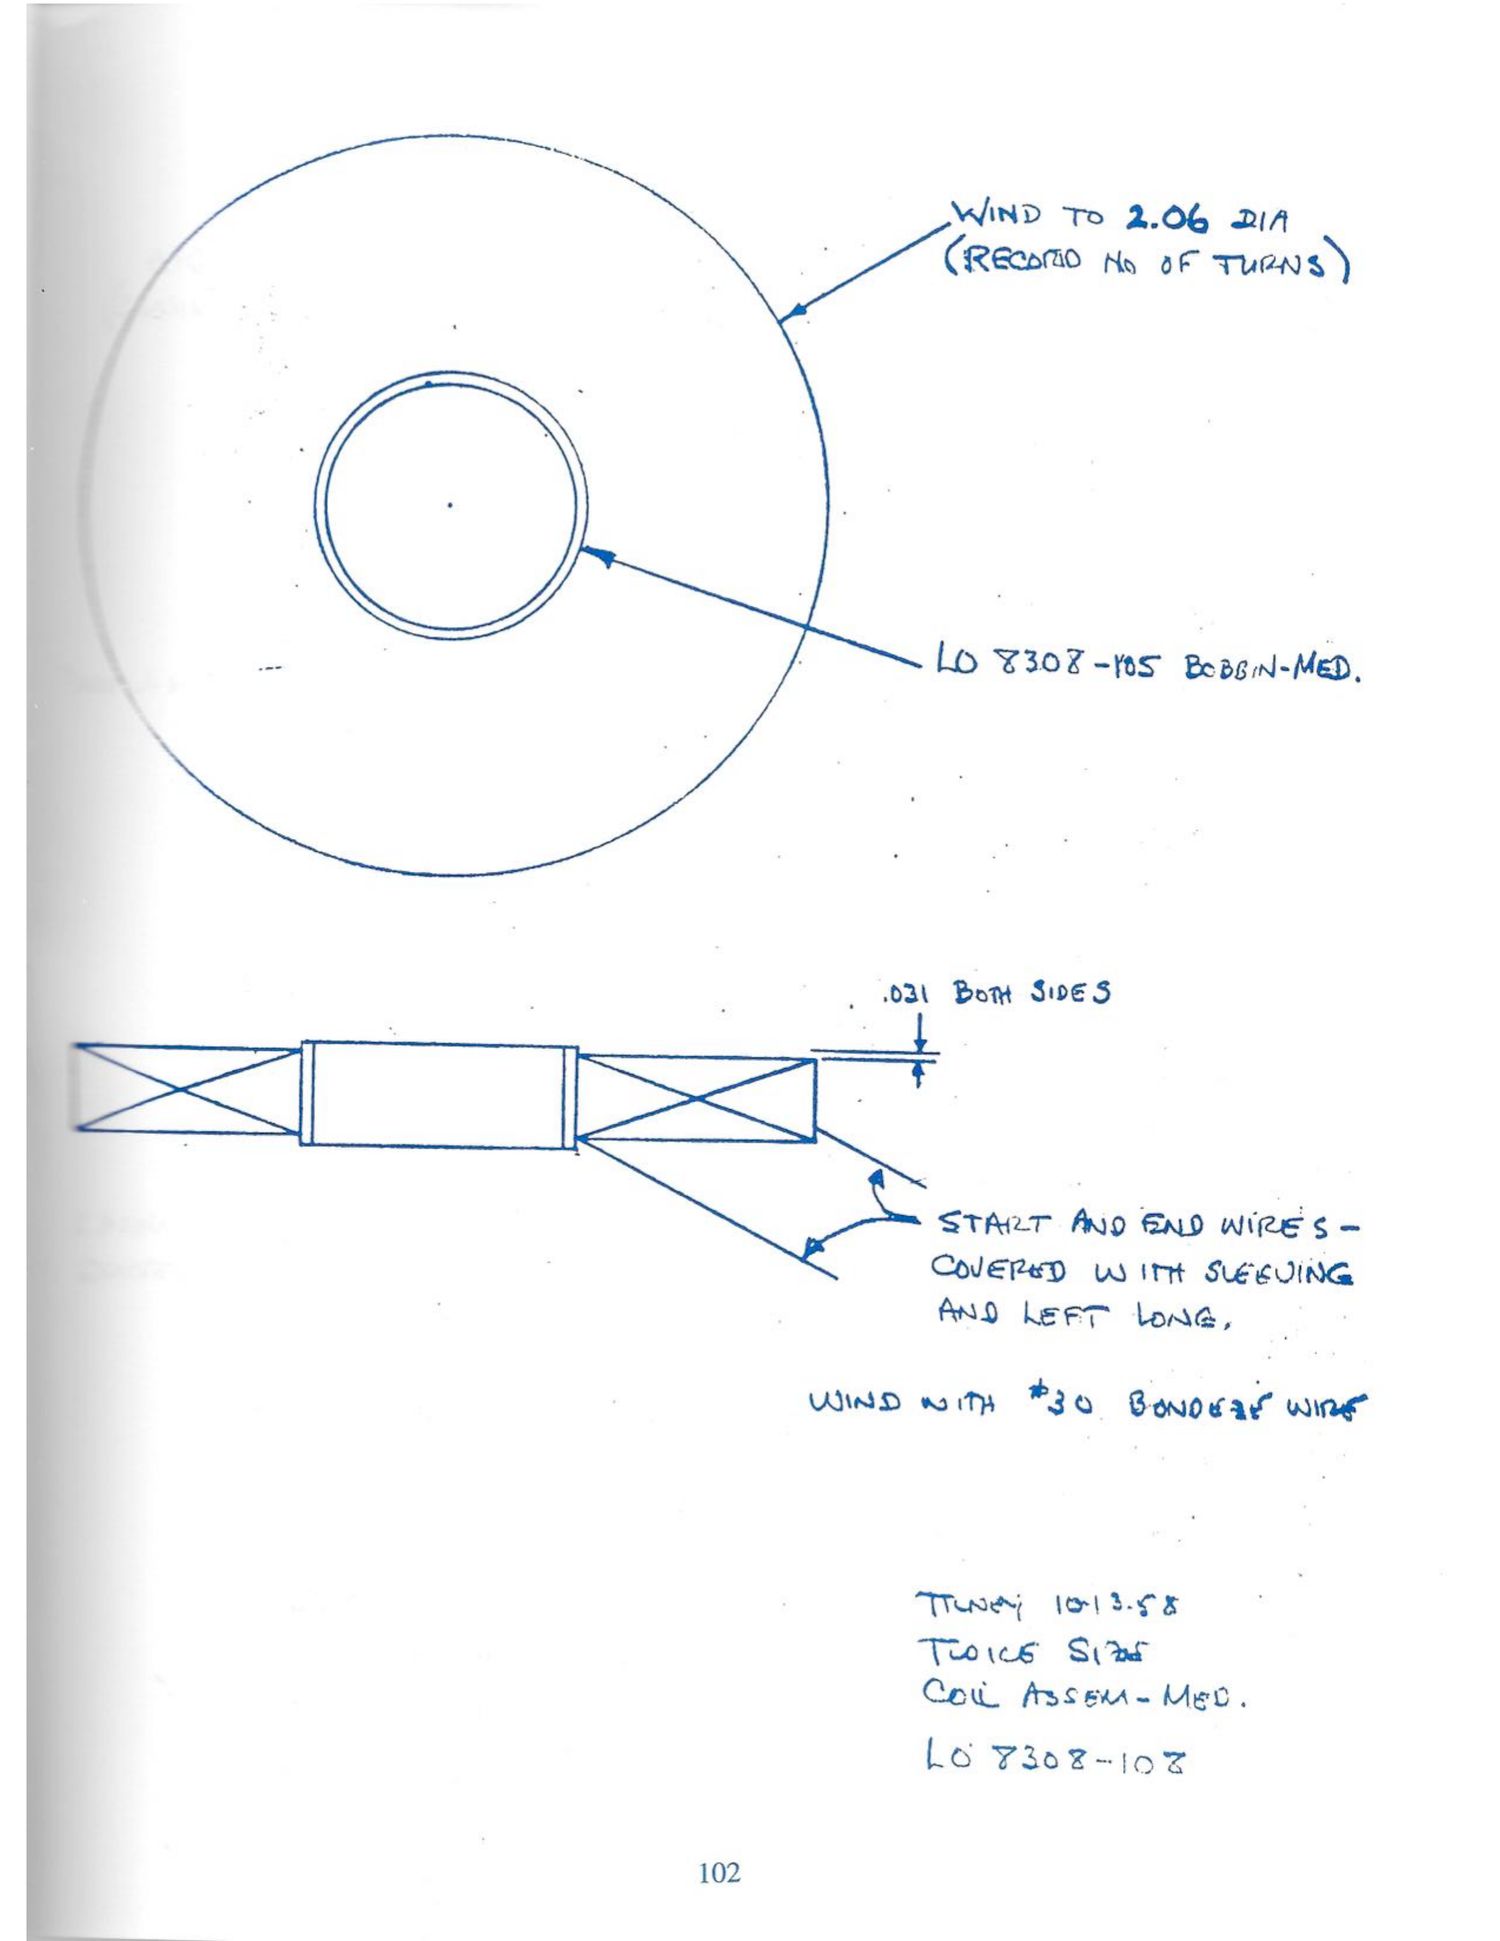 WIND TO 2.06 DIA
(RECORD NO OF TURNS)
LO 8308-105 BOBBIN-MED.
.031 BOTH SIDES
START AND END WIRES -
COVERED WITH SLEEVING
AND LEFT LONG.
WIND WITH #30 BONDEZE WIRE
10-13-58
TWICE SIZE
COIL ASSEM-MED.
LO 8308-108
102